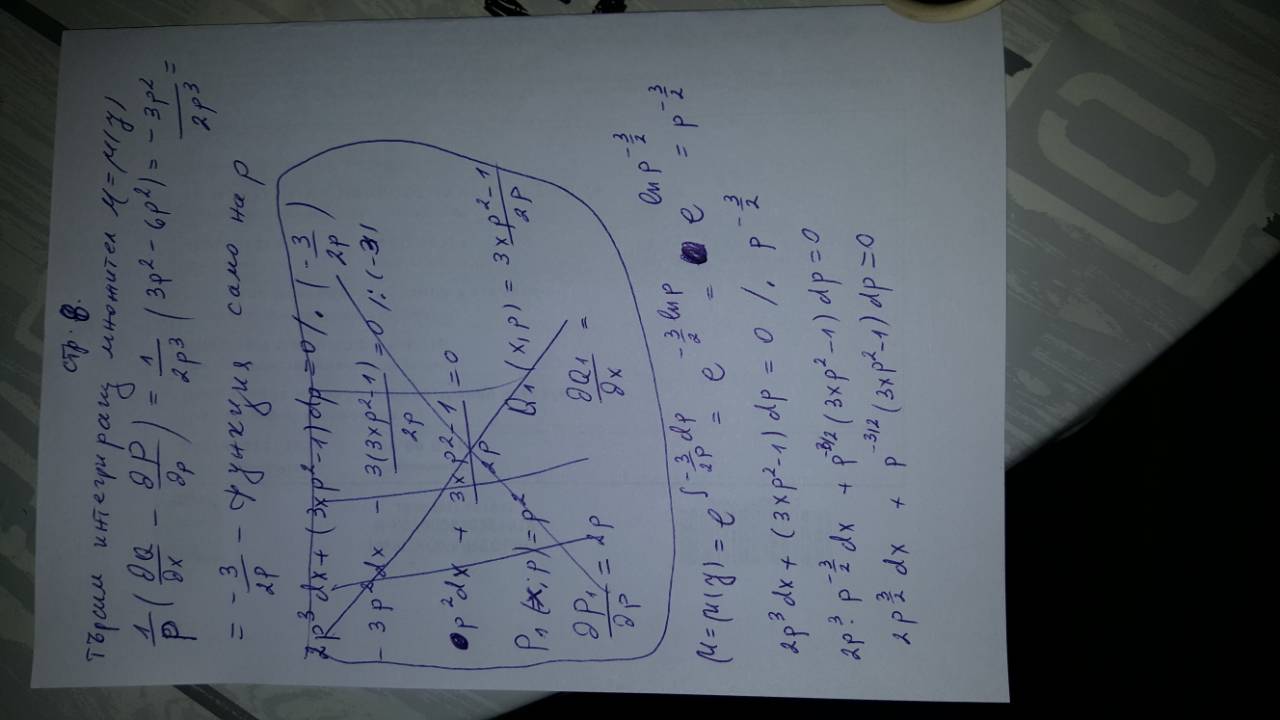 стр. 8.
Търсим интегриращ множител μ = μ(y)
1/P (∂Q/∂x − ∂P/∂p) = 1/2p³ (3p² − 6p²) = −3p²/2p³ =
= −3/2p − функция само на p
2p³dx + (3xp²−1)dp = 0 /. (−3/2p)
− 3p²dx − 3(3xp²−1)/2p = 0 /:(−3)
p²dx + 3xp²−1/2p = 0
P₁(x;p) = p² Q₁(x,p) = 3xp²−1/2p
∂P₁/∂p = 2p ∂Q₁/∂x =
μ = μ(y) = e^∫−3/2p dp = e^−3/2 lnp = e^lnp^−3/2 = p^−3/2
2p³dx + (3xp²−1)dp = 0 /. p^−3/2
2p³· p^−3/2 dx + p^−3/2 (3xp²−1)dp = 0
2p^3/2 dx + p^−3/2 (3xp²−1)dp = 0